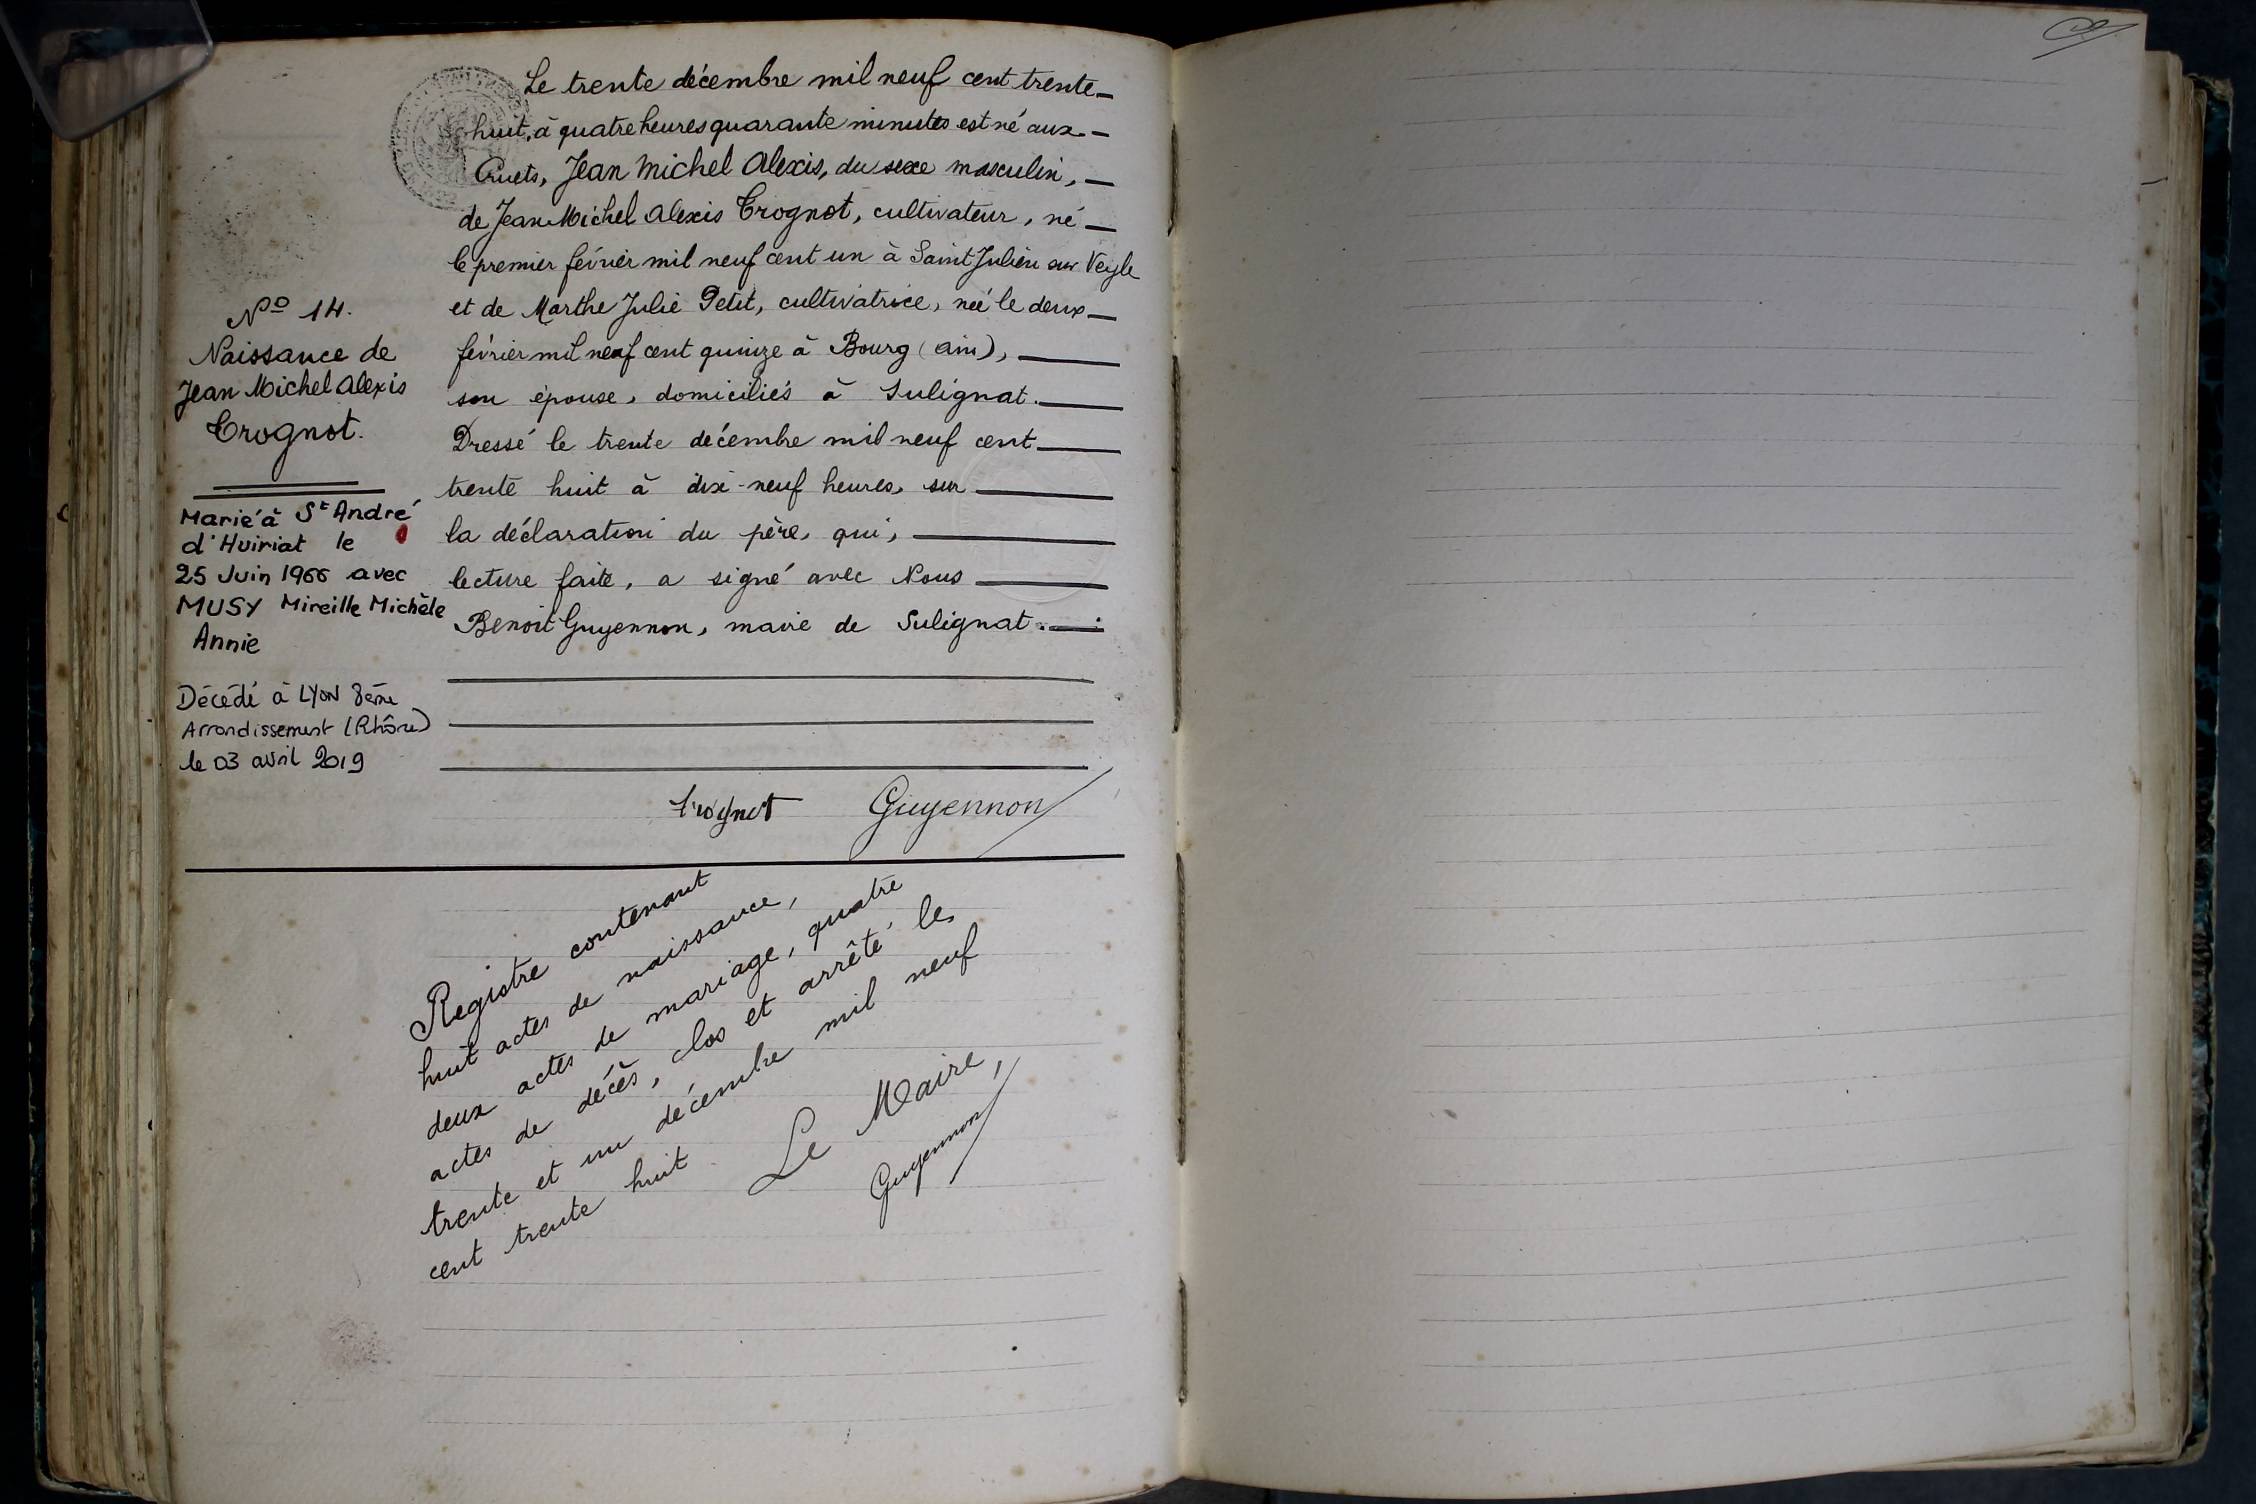 Le trente décembre mil neuf cent trente-
huit, à quatre heures quarante minutes est né aux
Cruets, Jean Michel Alexis, du sexe masculin,
de Jean Michel Alexis Trognot, cultivateur, né
le premier février mil neuf cent un à Saint Julien sur Veyle
et de Marthe Julie Petit, cultivatrice, née le deux
février mil neuf cent quinze à Bourg (Ain),
son épouse, domiciliés à Sulignat.
Dressé le trente décembre mil neuf cent
trente huit à dix-neuf heures, sur
la déclaration du père, qui,
lecture faite, a signé avec Nous
Benoit Guyennon, maire de Sulignat.
Trognot Guyennon
No 14.
Naissance de
Jean Michel Alexis
Trognot.
Marié à St André
d'Huiriat le
25 Juin 1966 avec
MUSY Mireille Michèle
Annie
Décédé à LYON 8ème
Arrondissement (Rhône)
le 03 avril 2019
Registre contenant
huit actes de naissance,
deux actes de mariage, quatre
actes de décès, clos et arrêté le
trente et un décembre mil neuf
cent trente huit
Le Maire,
Guyennon